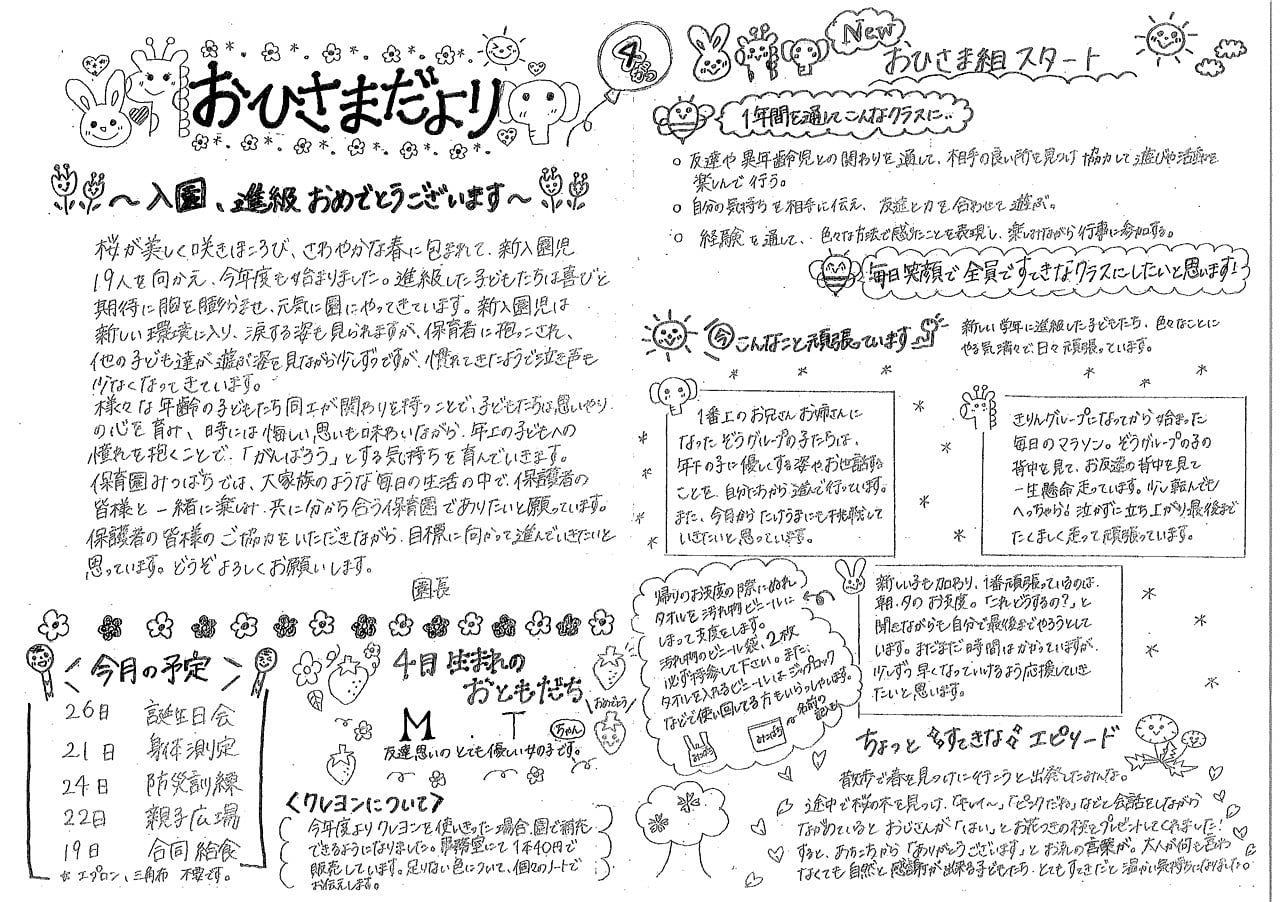 おひさまだより
4がつ
～入園、進級おめでとうございます～
桜が美しく咲きほころび、さわやかな春に包まれて、新入園児
19人を向かえ、今年度も始まりました。進級した子どもたちは喜びと
期待に胸を膨らませ、元気に園にやってきています。新入園児は
新しい環境に入り、涙する姿も見られますが、保育者に抱っこされ、
他の子ども達が遊ぶ姿を見ながら少しずつですが、慣れてきたようで泣き声も
少なくなってきています。
様々な年齢の子どもたち同士が関わりを持つことで、子どもたちは思いやり
の心を育み、時には悔しい思いも味わいながら、年上の子どもへの
憧れを抱くことで、「がんばろう」とする気持ちを育んでいきます。
保育園みつばちでは、大家族のような毎日の生活の中で、保護者の
皆様と一緒に楽しみ、共に分かち合う保育園でありたいと願っています。
保護者の皆様のご協力をいただきながら、目標に向かって進んでいきたいと
思っています。どうぞよろしくお願いします。
園長
今月の予定
26日 誕生日会
21日 身体測定
24日 防災訓練
22日 親子広場
19日 合同給食
☆エプロン、三角巾 不要です。
4月生まれの
おともだち
おめでとう
M.T ちゃん
友達思いのとても優しい女の子です。
＜クレヨンについて＞
今年度よりクレヨンを使いきった場合、園で補充
できるようになりました。事務室にて1本40円で
販売しています。足りない色について、個々のノートで
お伝えします。
New
おひさま組スタート
1年間を通してこんなクラスに..
○ 友達や異年齢児との関わりを通して、相手の良い所を見つけ協力して遊びや活動を
楽しんで行う。
○ 自分の気持ちを相手に伝え、友達と力を合わせて遊ぶ。
○ 経験を通して、色々な方法で感じたことを表現し、楽しみながら行事に参加する。
毎日笑顔で全員ですてきなクラスにしたいと思います!
今こんなこと頑張っています
新しい学年に進級した子どもたち、色々なことに
やる気満々で、日々頑張っています。
1番上のお兄さんお姉さんに
なったぞうグループの子たちは、
年下の子に優しくする姿やお世話する
ことを、自分たちから進んで行っています。
また、今月からたけうまにも挑戦して
いきたいと思っています。
きりんグループになってから始まった
毎日のマラソン。ぞうグループの子の
背中を見て、お友達の背中を見て
一生懸命走っています。少し転んでも
へっちゃら!泣かずに立ち上がり最後まで
たくましく走って頑張っています。
帰りのお支度の際にぬれ
タオルを汚れ物ビニールに
しまって支度をします。
汚れ物のビニール袋、2枚
必ず持参して下さい。また、
タオルを入れるビニールはジップロック
などで使い回してる方もいらっしゃいます。
みつばち
みつばち
名前の記入も
新しい子も加わり、1番頑張っているのは、
朝・夕のお支度。「これどうするの?」と
聞きながらも自分で最後までやろうとして
います。まだまだ時間はかかっていますが、
少しずつ早くなっていけるよう応援していき
たいと思います。
ちょっとすてきなエピソード
散歩で春を見つけに行こうと出発したみんな。
途中で桜の木を見つけ、「キレイ～」「ピンクだね」などと会話をしながら
ながめているとおじさんが「はい」とお花つきの枝をプレゼントしてくれました!
すると、あちこちから「ありがとうございます」とお礼の言葉が。大人が何も言わ
なくても自然と感謝が出来る子どもたち。とてもすてきだと温かい気持ちになりました。